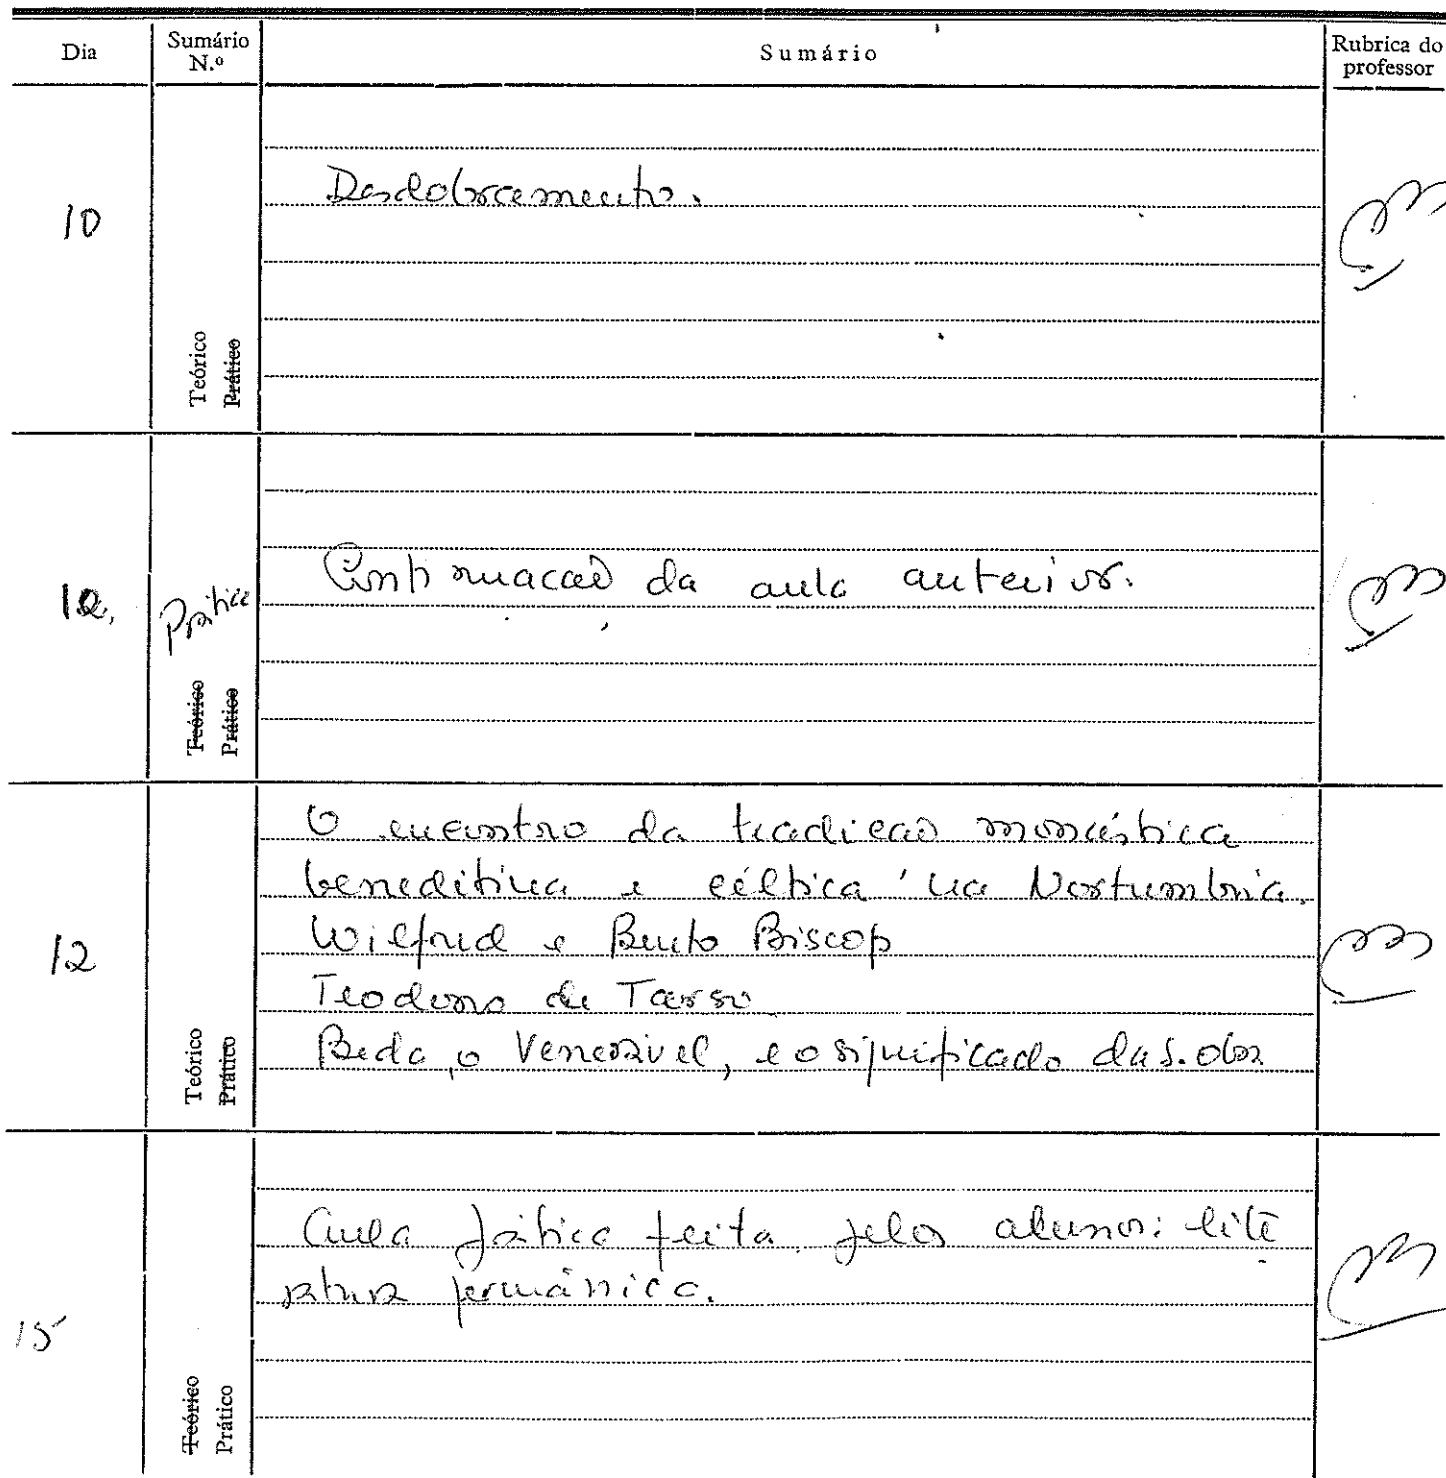 Dia Sumário N.º Sumário Rubrica do professor
10
Desdobramento.
Teórico
Prático
12,
Prática
Continuação da aula anterior.
Teórico
Prático
12
O encontro da tradição monástica
beneditina e céltica na Nortumbria.
Wilfrid e Bento Biscop
Teodoro de Tarso
Beda, o Venerável, e o significado da s. obra
Teórico
Prático
15
Aula prática feita pelos alunos: lite
ratura germânica.
Teórico
Prático